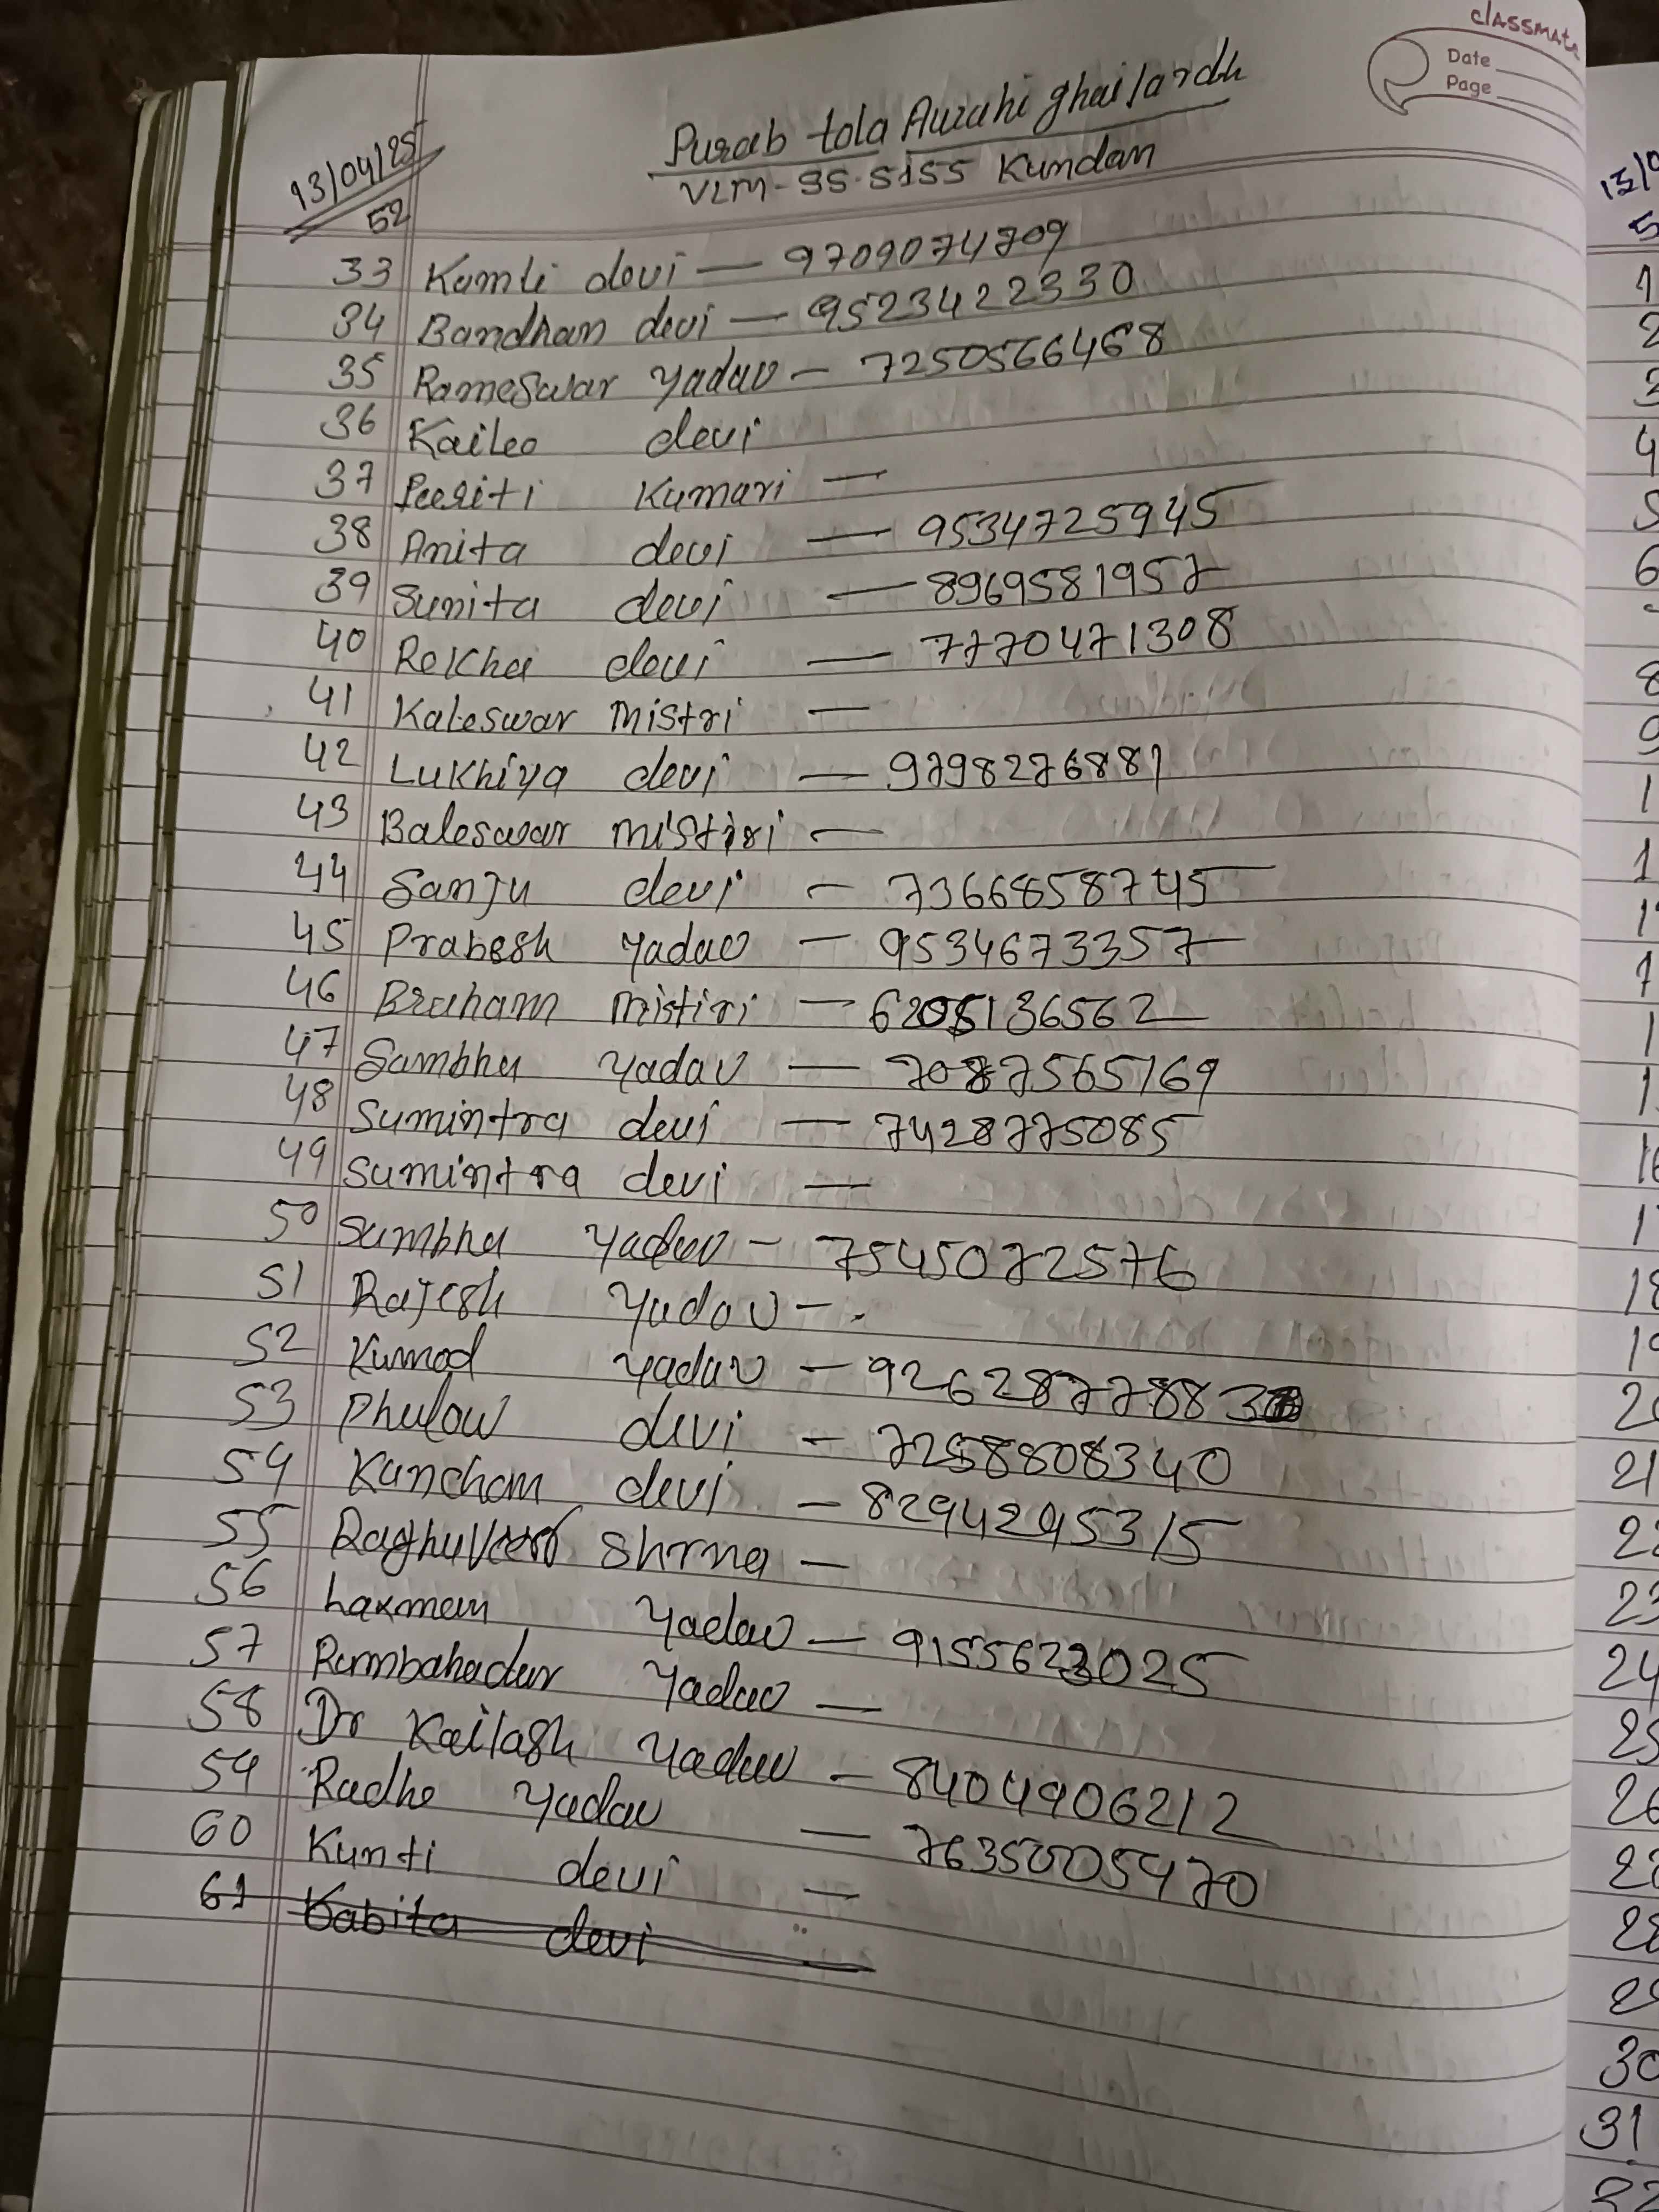 classmate
Date
Page
Purab tola Aurahi ghailardh
13/04/25
52
VLM-95-S155 Kundan
33 Kamli devi — 9709074709
34 Bandhan devi — 9523422330
35 Rameswar Yadav — 7250566468
36 Kaileo devi
37 Peeriti Kumari —
38 Anita devi — 9534725945
39 Sunita devi — 8969581957
40 Rekha devi — 7770471308
41 Kaleswar Mistri —
42 Lukhiya devi — 9798276881
43 Baleswar mistiri —
44 Sanju devi — 7366858745
45 Prabesh Yadav — 9534673357
46 Braham Mistiri — 6205136562
47 Sambhu Yadav — 7087565169
48 Sumintra devi — 7428775085
49 Sumintra devi —
50 Sambhu Yadav — 7545072576
51 Rajesh Yadav —
52 Kumod Yadav — 9262877883
53 Phulow devi — 7258808340
54 Kancham devi — 8294295315
55 Raghuveer Shrma —
56 Laxman Yadav — 9155623025
57 Rambahadur Yadav —
58 Dr Kailash Yadav — 8404906212
59 Radhe Yadav — 7635005470
60 Kunti devi —
61 Kabita devi